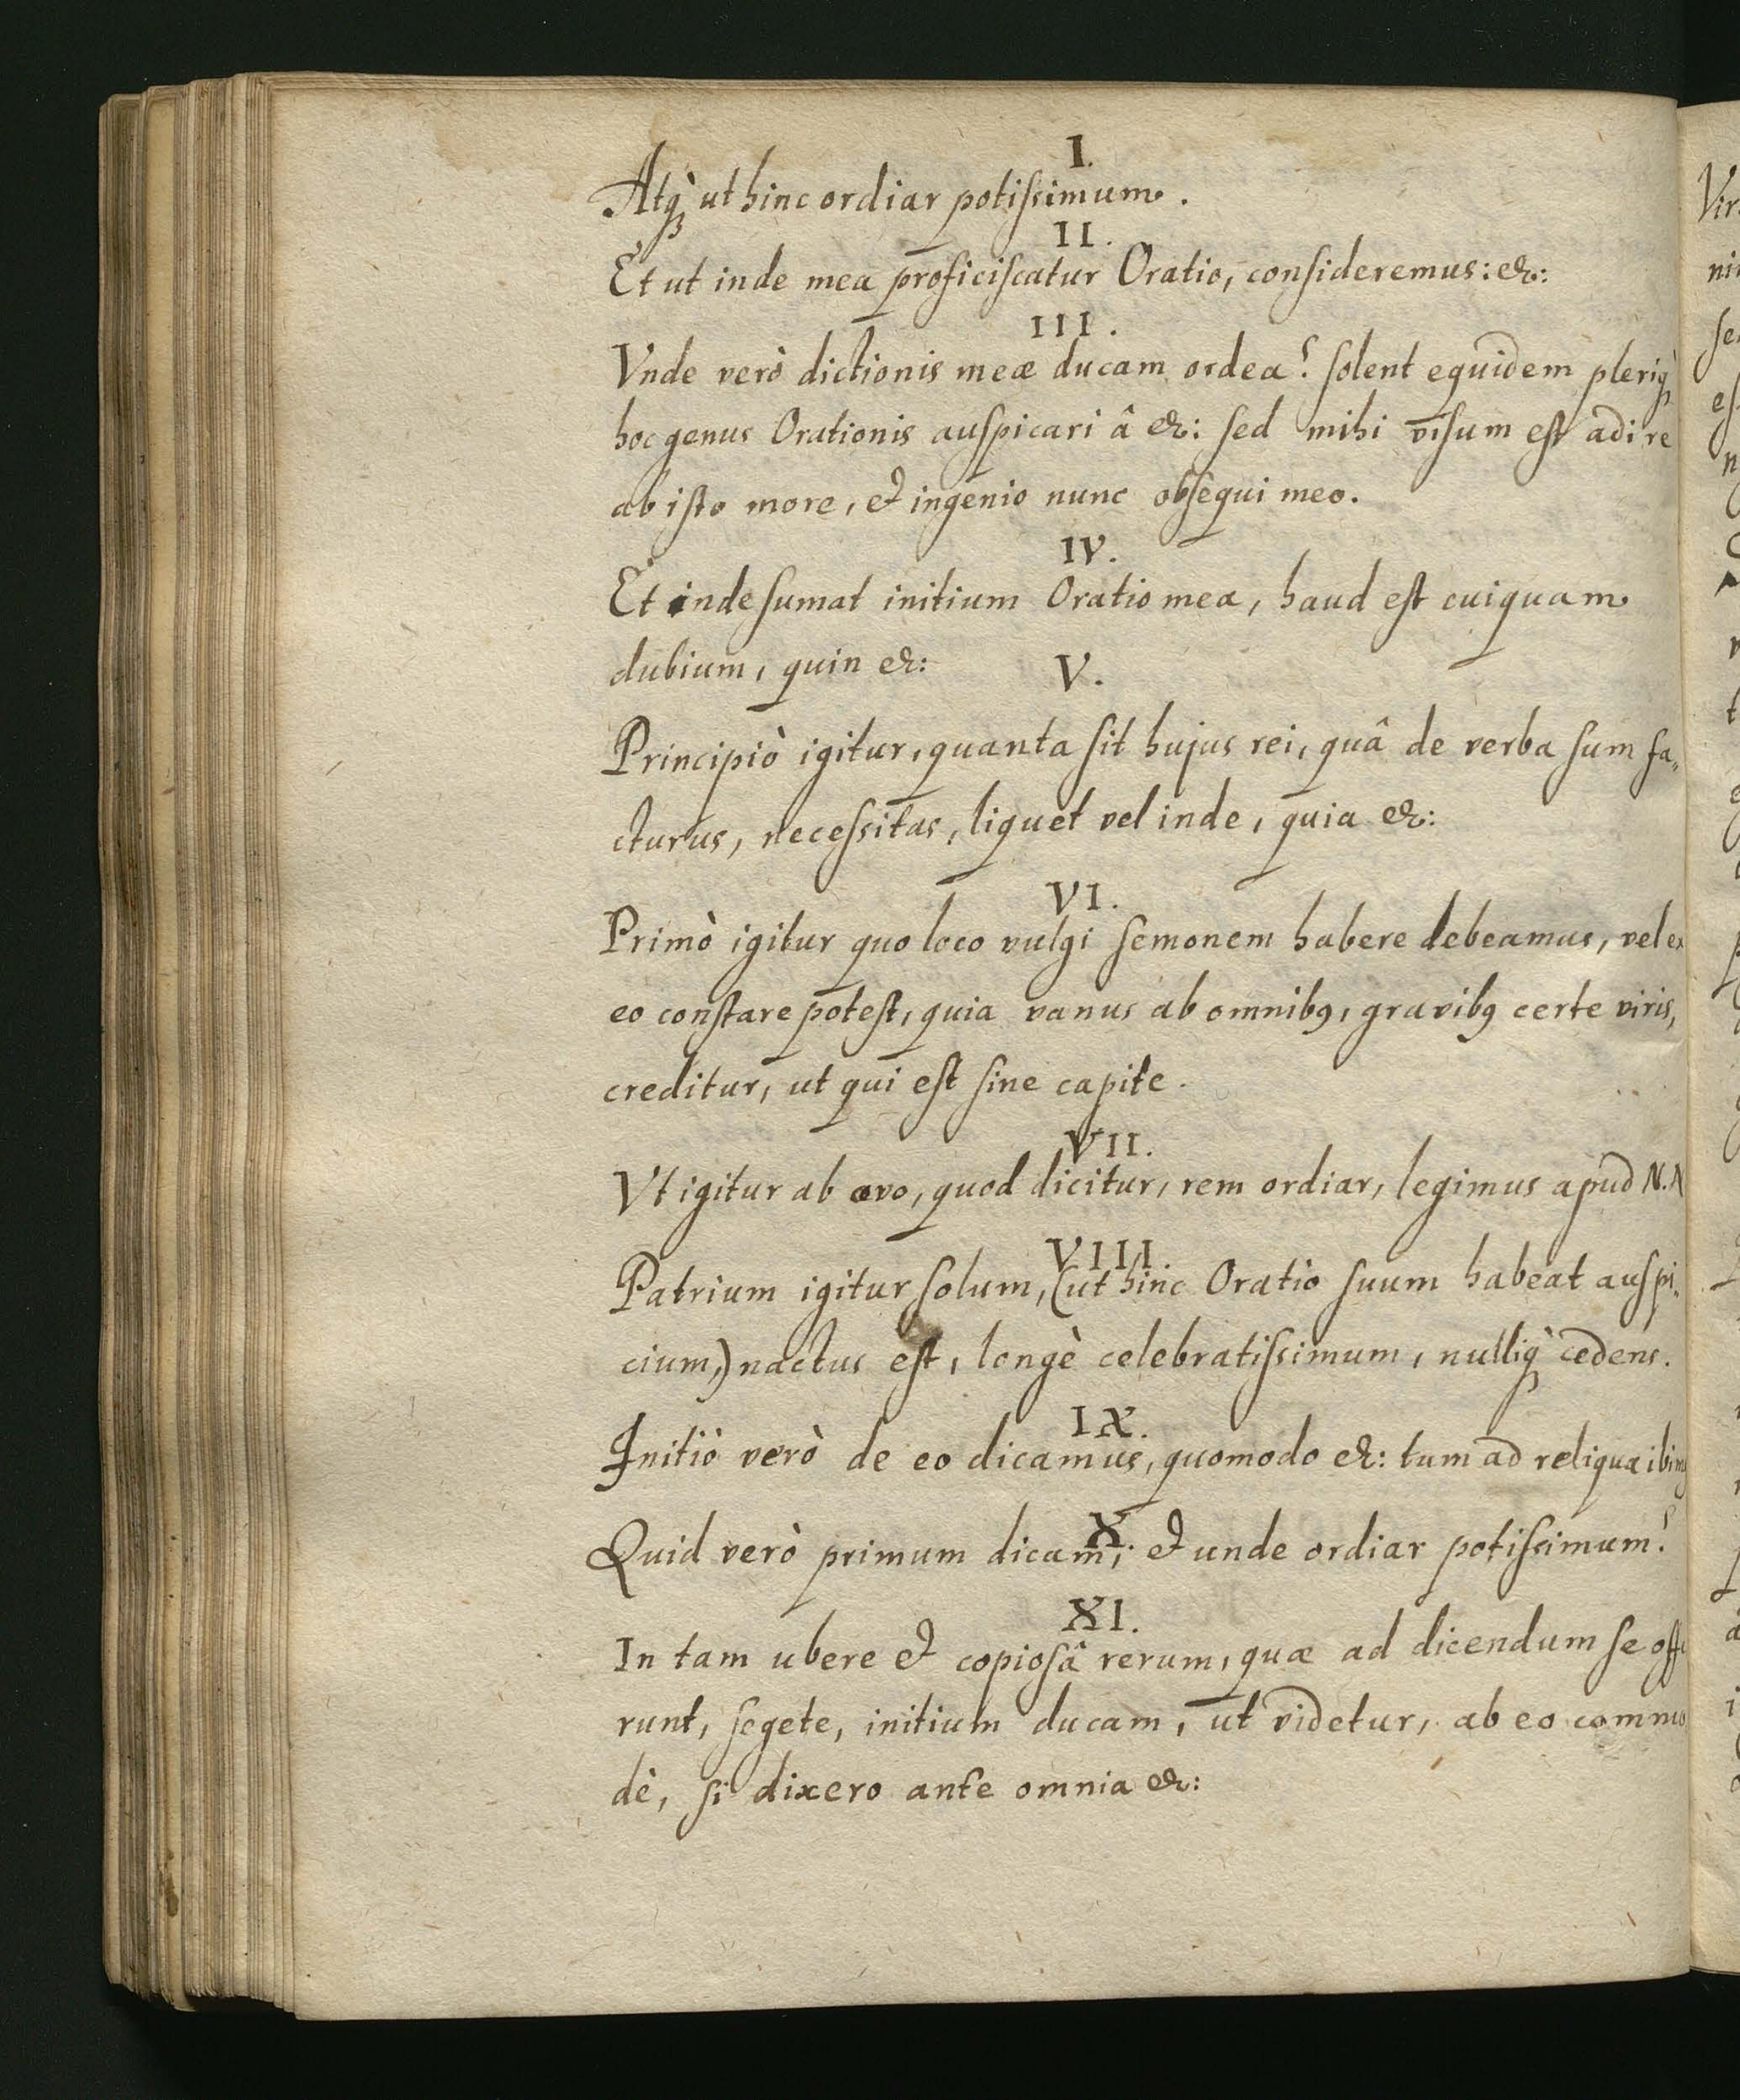 I.
Atq̀ꝫ ut hinc ordiar potiſsimum.
II.
Et ut inde mea proficiſcatur Oratio, conſideremus: &:
III.
Vnde verò dictionis meæ ducam ordea? ſolent equidem pleriq̀ꝫ
hoc genus Orationis auſpicari â &: ſed mihi viſum eſt adire
ab iſto more, & ingenio nunc obſequi meo.
IV.
Et inde ſumat initium Oratio mea, haud eſt cuiquam
dubium, quin &:
V.
Principiò igitur, quanta ſit hujus rei, quâ de verba ſum fa„
cturus, neceſsitas, liquet vel inde, quia &:
VI.
Primò igitur quo loco vulgi ſemonem habere debeamus, vel ex
eo conſtare poteſt, quia vanus ab omnibꝫ, gravibꝫ certe viris,
creditur, ut qui eſt ſine capite.
VII.
Vt igitur ab ovo, quod dicitur, rem ordiar, legimus apud N.N
VIII.
Patrium igitur ſolum, (ut hinc Oratio ſuum habeat auſpi„
cium,) nactus eſt, longè celebratiſsimum, nulliq̀ꝫ cedens.
IX.
Initiò verò de eo dicamus, quomodo &: tum ad reliqua ibimꝫ
X.
Quid verò primum dicam; & unde ordiar potiſsimum?
XI.
In tam ubere & copioſâ rerum, quæ ad dicendum ſe offe
runt, ſegete, initium ducam, ut videtur, ab eo commo
dè, ſi dixero ante omnia &: